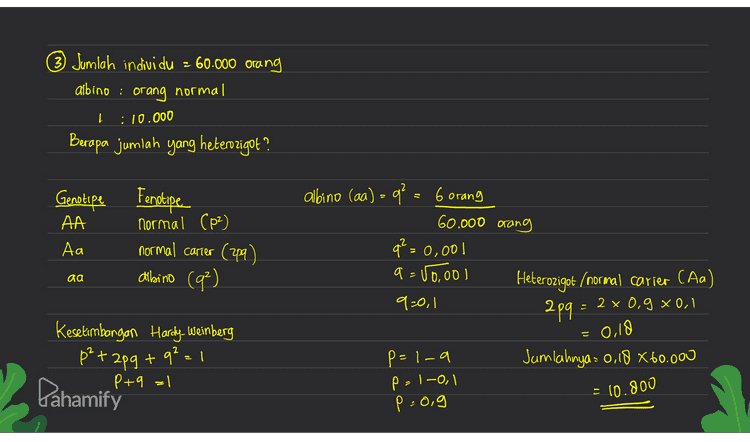 ③ Jumlah individu = 60.000 orang
albino : orang normal
1 : 10.000
Berapa jumlah yang heterozigot?
Genotipe Fenotipe
AA normal (p²)
Aa normal carier (2pq)
aa albino (q²)
Kesetimbangan Hardy-Weinberg
p² + 2pq + q² = 1
p+q = 1
albino (aa) = q² = 6 orang
60.000 orang
q² = 0,001
q = √0,001
q=0,1
p = 1-q
p = 1-0,1
p = 0,9
Heterozigot/normal carier (Aa)
2pq = 2 x 0,9 x 0,1
= 0,18
Jumlahnya = 0,18 x 60.000
= 10.800
Pahamify